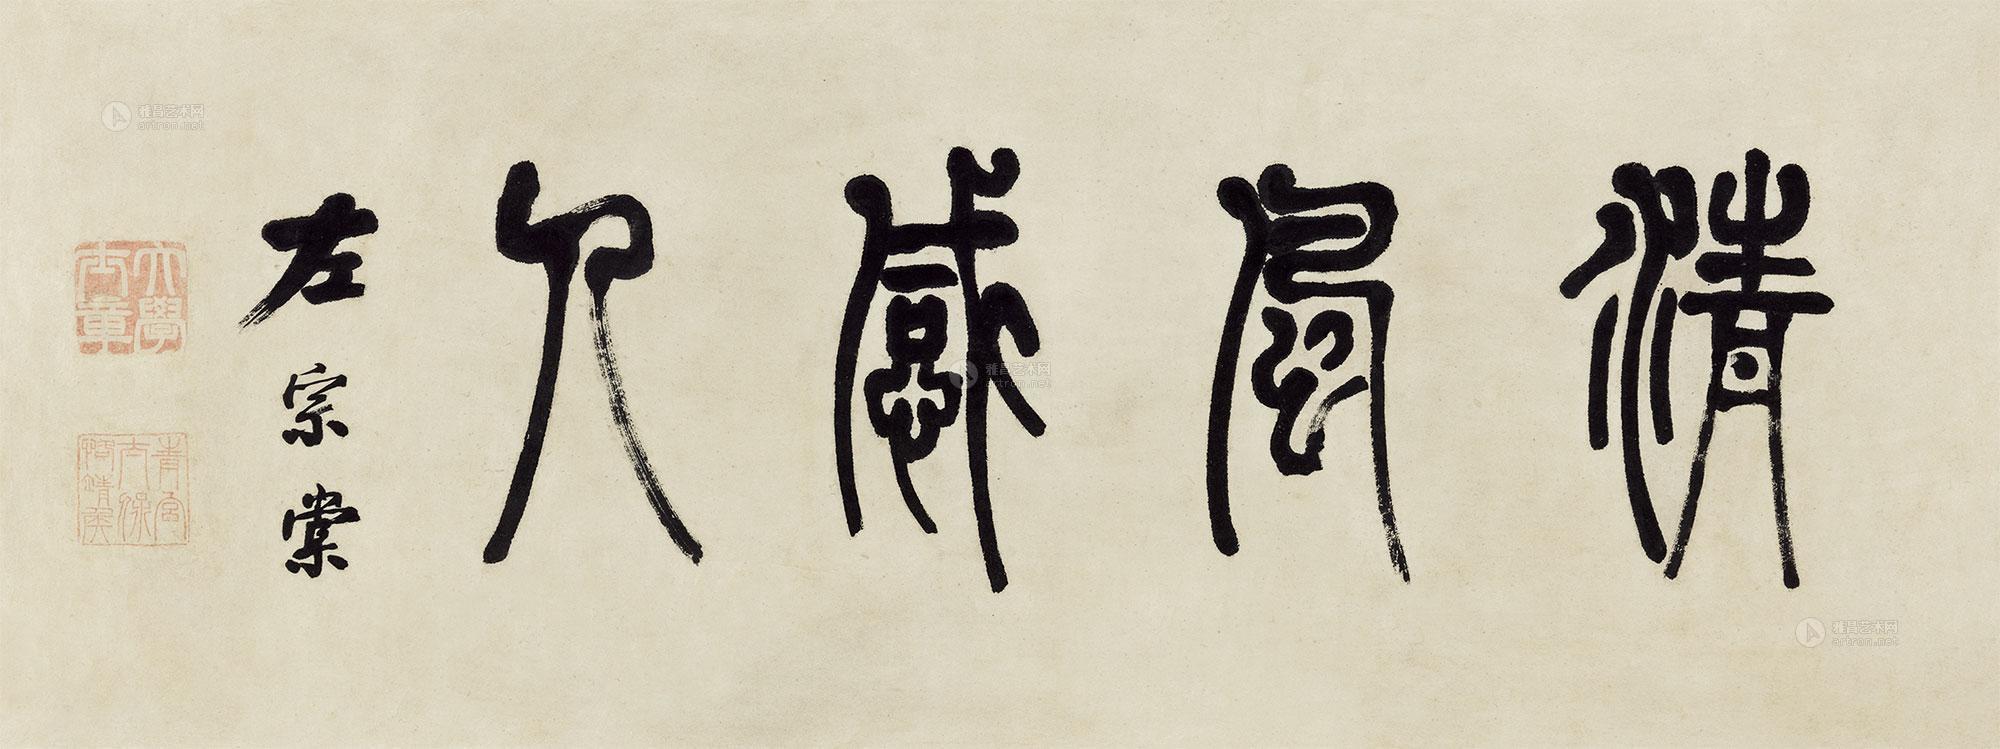 清風感人
左宗棠
大學士章
青宮太保恪靖侯
雅昌艺术网
artron.net
雅昌艺术网
artron.net
雅昌艺术网
artron.net